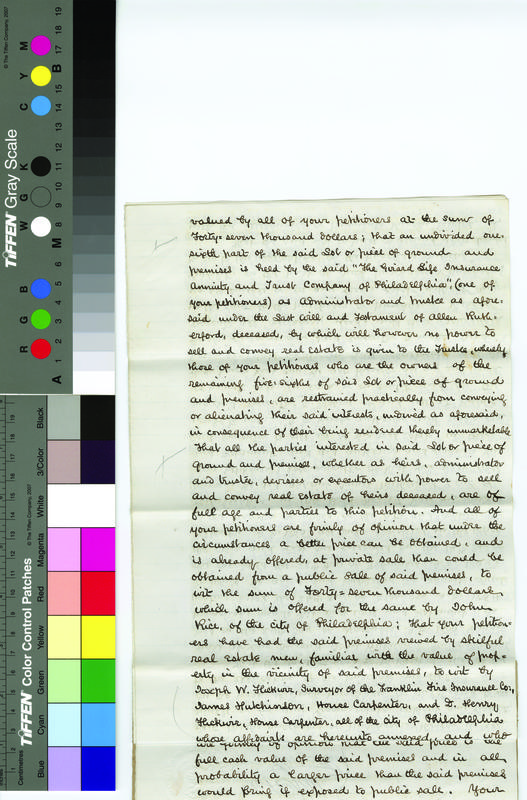 valued by all of your petitioners at the sum of
Forty=seven thousand dollars; that an undivided one-
sixth part of the said Lot or piece of ground and
premises is held by the said "The Girard Life Insurance
Annuity and Trust Company of Philadelphia", (one of
your petitioners) as Administrator and trustee as afore-
said under the Last Will and Testament of Allen Ruth-
erford, deceased, by which will however no power to
sell and convey real estate is given to the Trustee, whereby
those of your petitioners who are the owners of the
remaining five=sixths of said Lot or piece of ground
and premises, are restrained practically from conveying
or alienating their said interests, undivided as aforesaid,
in consequence of their being rendered thereby unmarketable.
That all the parties interested in said Lot or piece of
ground and premises, whether as heirs, administrator
and trustee, devisees or executors with power to sell
and convey real estate of heirs deceased, are of
full age and parties to this petition. And all of
your petitioners are firmly of opinion that under the
circumstances a better price can be obtained, and
is already offered, at private sale than could be
obtained from a public sale of said premises, to
wit the sum of Forty=seven thousand dollars
which sum is offered for the same by John
Rice, of the city of Philadelphia; That your petition-
ers have had the said premises viewed by skilful
real estate men, familiar with the value of prop-
erty in the vicinity of said premises, to wit by
Joseph W. Flickwir, Surveyor of the Franklin Fire Insurance Co.,
James Hutchinson, House Carpenter, and D. Henry
Flickwir, House Carpenter, all of the city of Philadelphia
whose affidavits are hereunto annexed, and who
are firmly of opinion that the said price is the
full cash value of the said premises and in all
probability a larger price than the said premises
would bring if exposed to public sale. Your
TIFFEN Gray Scale
© The Tiffen Company, 2007
R G B W G K C Y M
A 1 2 3 4 5 6 M 8 9 10 11 12 13 14 15 B 17 18 19
TIFFEN Color Control Patches
© The Tiffen Company, 2007
Centimetres
Blue
Cyan
Green
Yellow
Red
Magenta
White
3/Color
Black